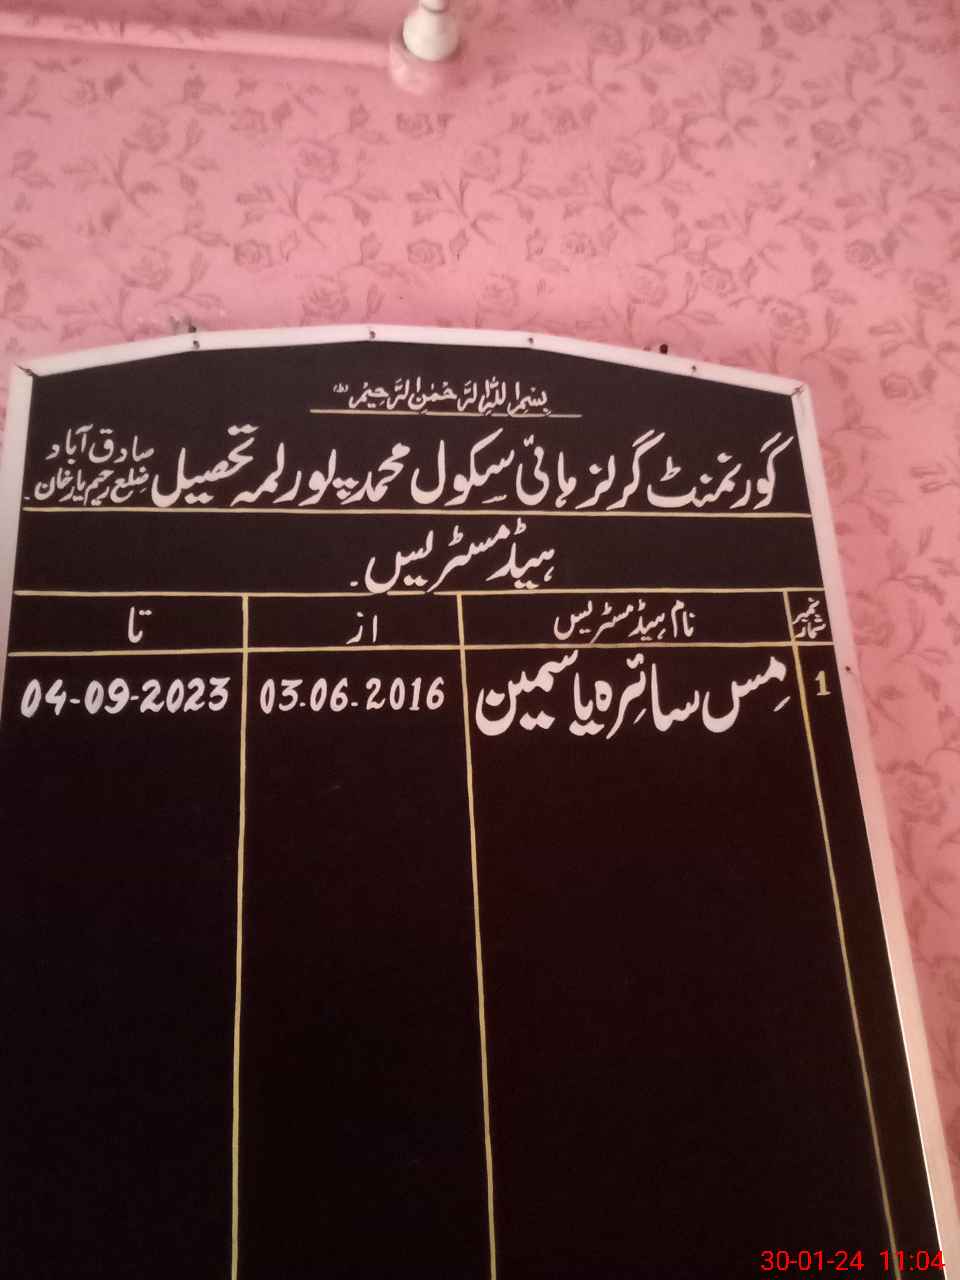 بِسْمِ اللّٰهِ الرَّحْمٰنِ الرَّحِيْمِ
گورنمنٹ گرلز ہائی سکول محمد پور لمہ تحصیل صادق آباد
ضلع رحیم یار خان
ہیڈ مسٹریس۔
نمبر شمار نام ہیڈ مسٹریس از تا
1 مِس سائرہ یاسمین 03.06.2016 04-09-2023
30-01-24 11:04